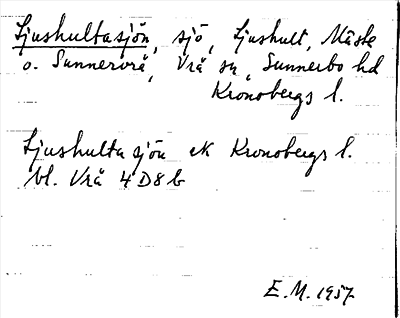 Ljushultasjön, sjö, Ljushult, Mäste
o. Sunnervrå, Vrå sn, Sunnerbo hd
Kronobergs l.
Ljushulta sjön ek Kronobergs l.
bl. Vrå 4D8b
E.M. 1957